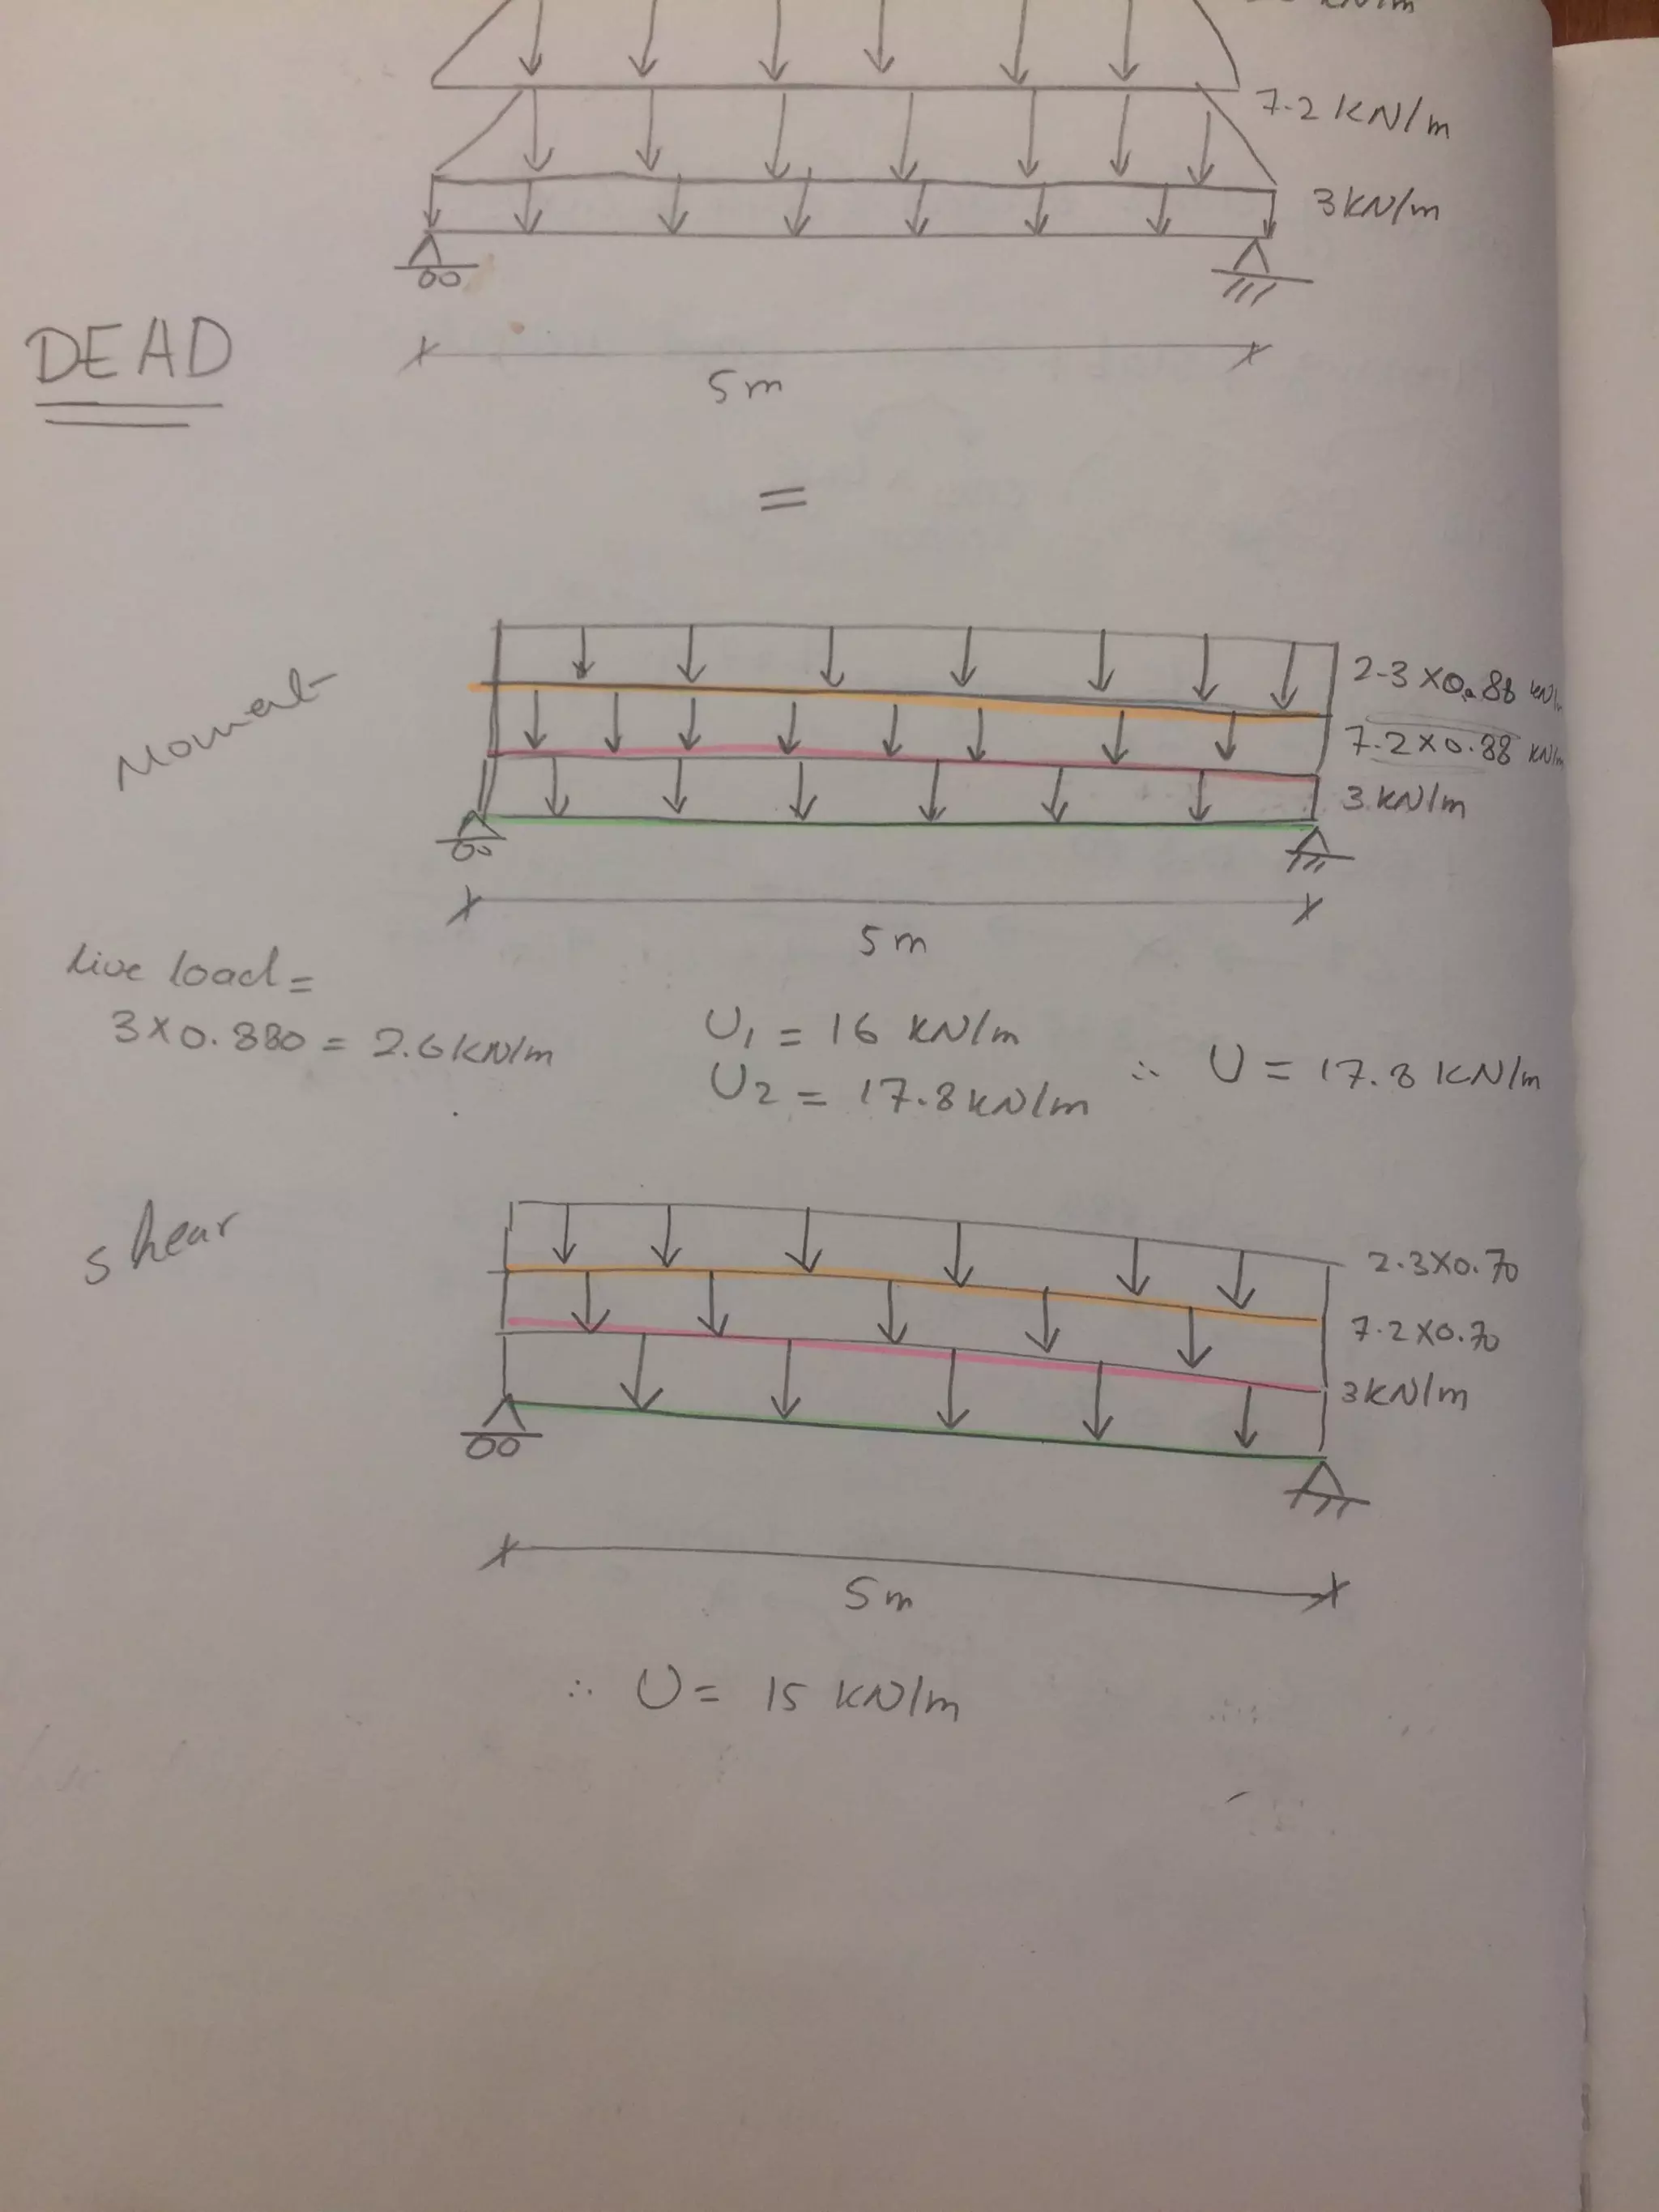 kN/m
7.2 KN/m
3 KN/m
DEAD
5m
=
Moment
2.3 X0.88 kN/m
7.2 X0.88 kN/m
3 KN/m
5m
live load =
3 X 0.880 = 2.6 KN/m
U1 = 16 KN/m
U2 = 17.8 KN/m
∴ U = 17.8 KN/m
shear
2.3X0.70
7.2 X0.70
3KN/m
5m
∴ U = 15 KN/m